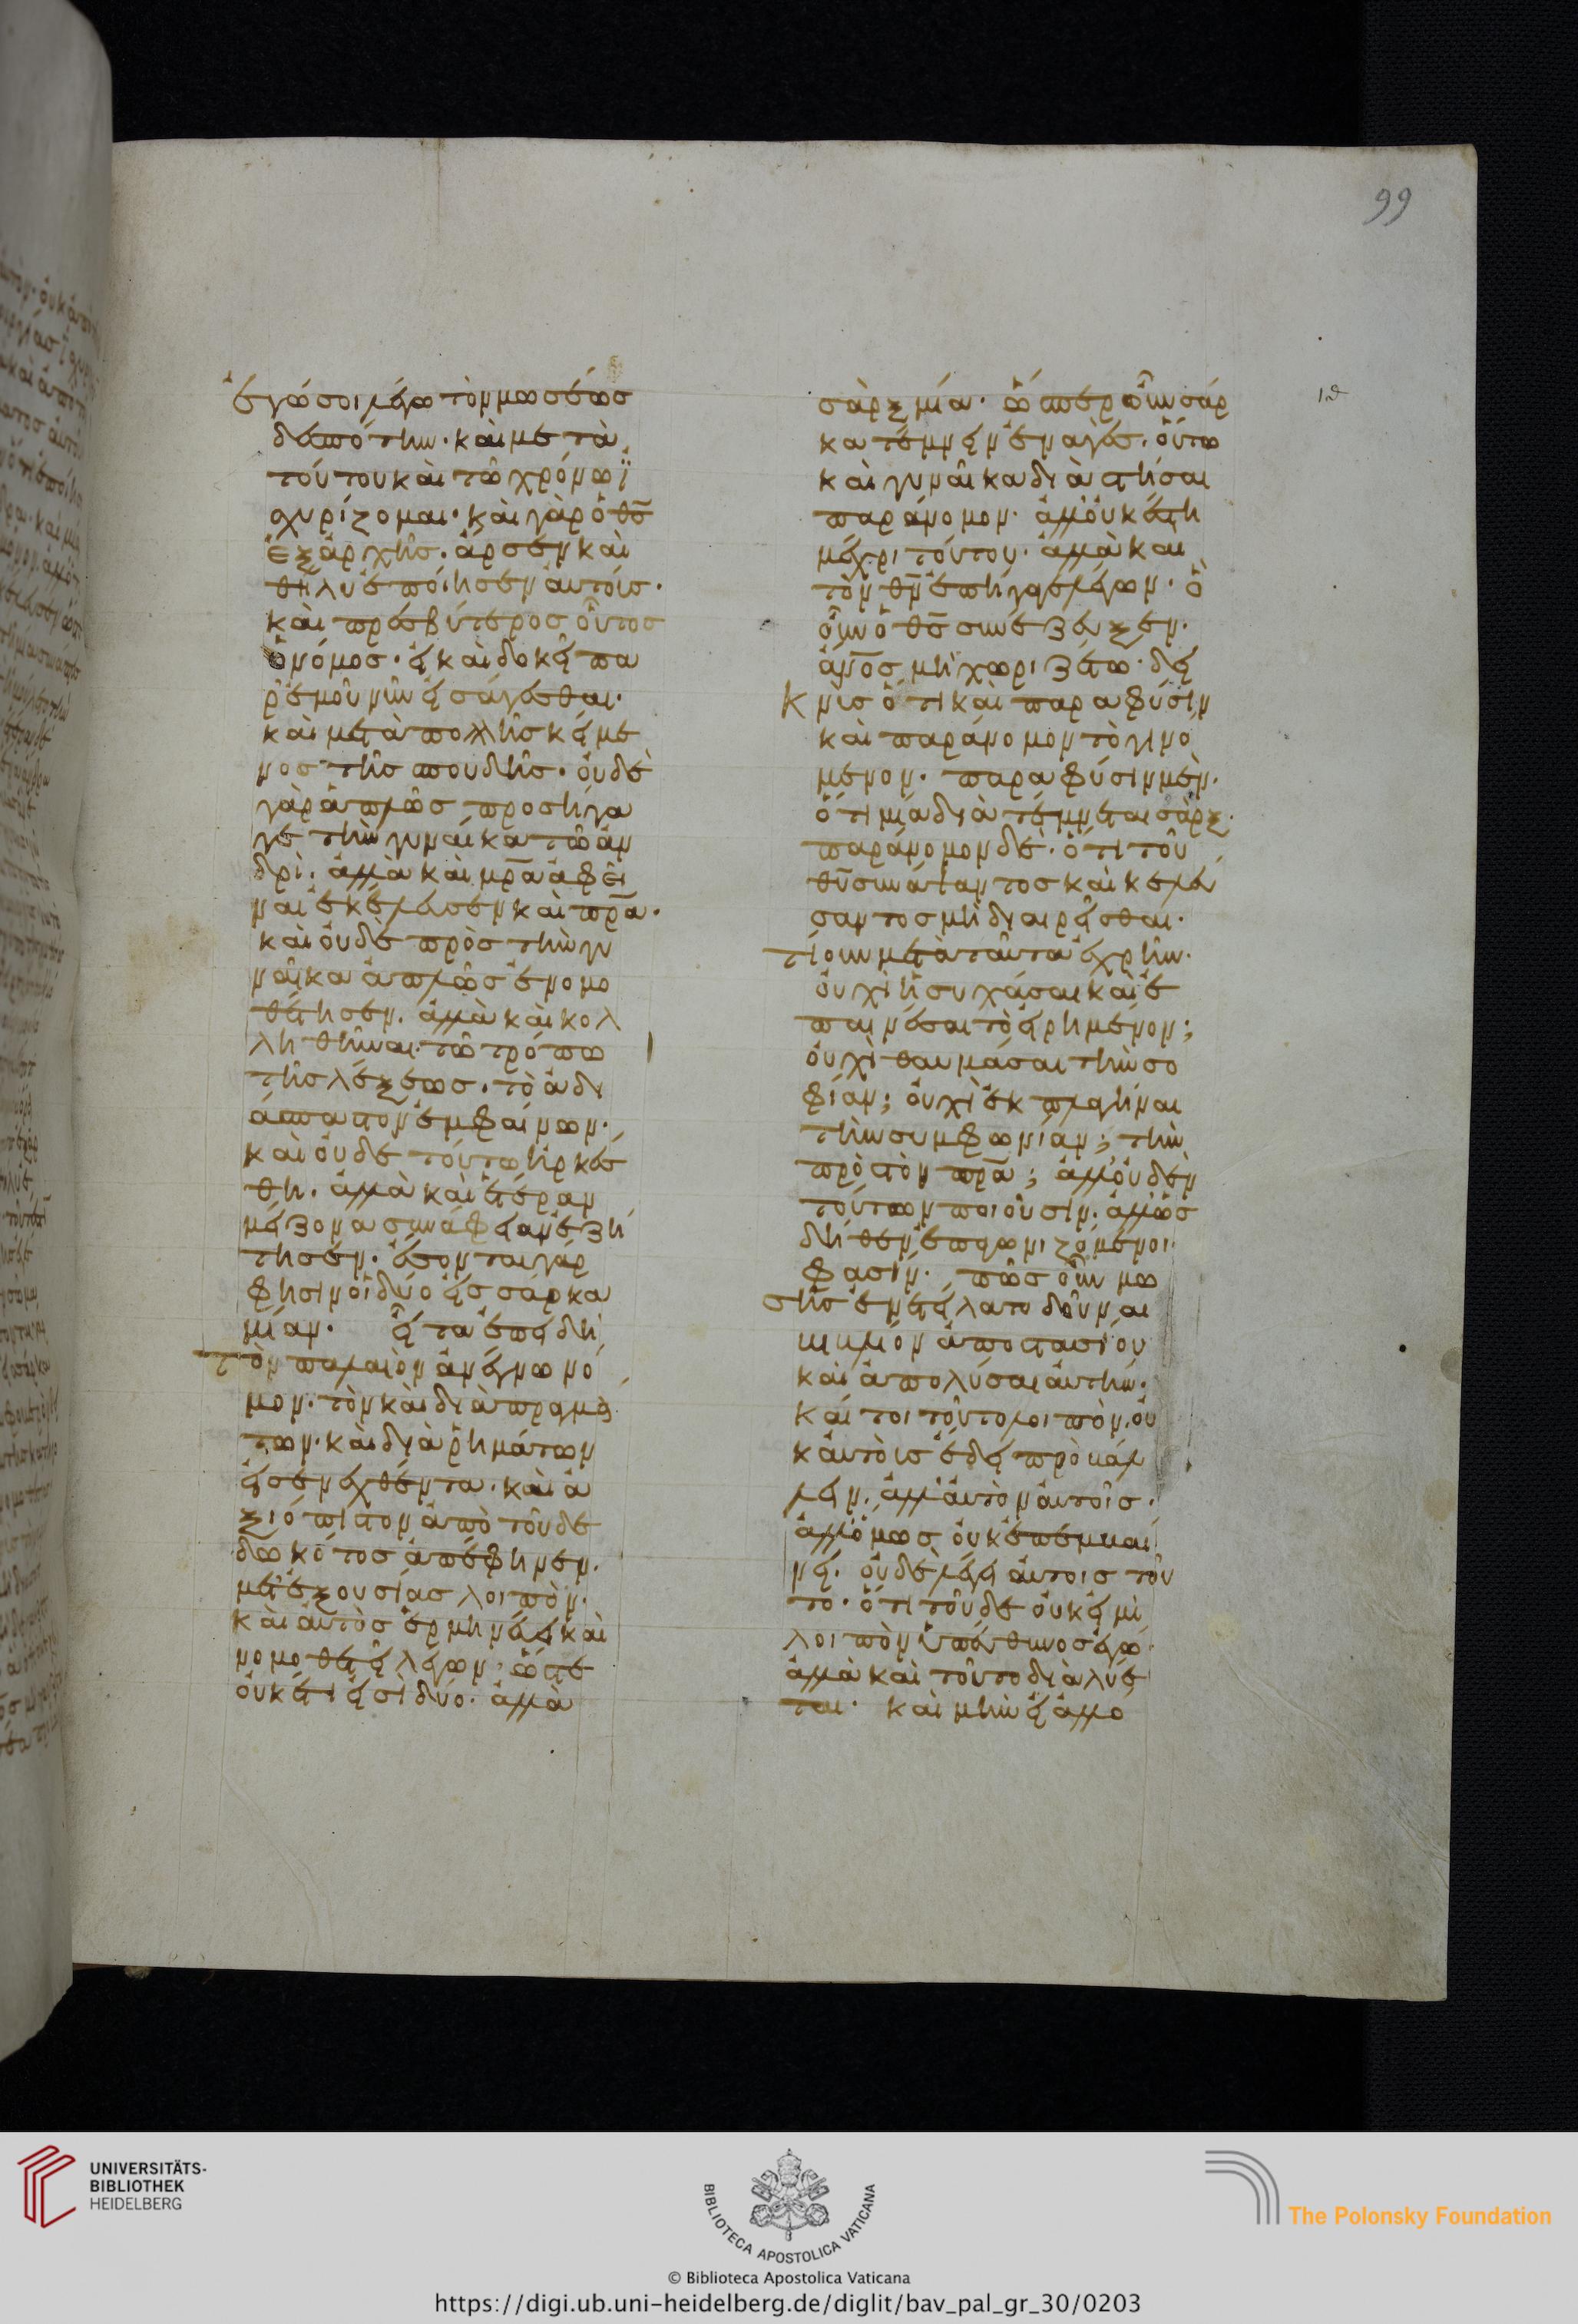 99
ιθ
ἐγώ σοι λέγω τὸν μωσέως
δεσπότην· καὶ μετὰ
τούτου καὶ τῶ χρόνω ϊ
σχυρίζομαι· καὶ γὰρ ὁ θ̅σ̅
ἐξ ἀρχῆς· ἄρσεν καὶ
θῆλυ ἐποίησεν αὐτούς·
καὶ πρεσβύτερος οὗτος
ὁ νόμος· εἰ καὶ δοκεῖ πα
ρ' ἐμοῦ νῦν εἰσάγεσθαι·
καὶ μετὰ πολλῆς κείμε
νος τῆς σπουδῆς· οὐδὲ
γὰρ ἁπλῶς προσήγα
γε τὴν γυναῖκα τῶ ἀν
δρί· ἀλλὰ καὶ μ̅ρ̅α̅ ἀφεῖ
ναι ἐκέλευσεν καὶ π̅ρ̅α̅·
καὶ οὐδὲ πρὸς τὴν γυ
ναῖκα ἁπλῶς ἐνομο
θέτησεν· ἀλλὰ καὶ κολ
ληθῆναι· τῶ τρόπω
τῆς λέξεως· τὸ ἀδι
άσπαστον ἐμφαίνων·
καὶ οὐδὲ τούτω ἠρκέσ
θη· ἀλλὰ καὶ ἑτέραν
μείζονα συνάφειαν ἐζή
τησεν· ἔσονται γάρ
φησιν οἱ δύο εἰς σάρκα
μίαν· εἶτα ἐπειδὴ
τὸν παλαιὸν ἀνέγνω νό
μον· τὸν καὶ διὰ πραγμά
των· καὶ διὰ ῥημάτων
εἰσενεχθέντα· καὶ ἀ
ξιόπιστον ἀπὸ τοῦ δε
δωκότος ἀπέφηνεν·
μετ' ἐξουσίας λοιπὸν·
καὶ αὐτὸς ἑρμηνεύει καὶ
νομοθετεῖ λέγων· ὥστε
οὐκέτι εἰσὶ δύο· ἀλλὰ
σὰρξ μία· ὥσπερ οὖν σάρ
κα τέμνειν ἐναγές· οὕτω
καὶ γυναῖκα διαστῆσαι
παράνομον· ἀλλ' οὐκ ἔστη
μέχρι τούτου· ἀλλὰ καὶ
τὸν θ̅ν̅ ἐπήγαγε λέγων· ὃ
οὖν ὁ θ̅σ̅ συνέζευξεν·
ἄν̅ο̅ς μὴ χωριζέτω· δει
κνὺς ὅτι καὶ παρα φύσιν
καὶ παράνομον τὸ γινό
μενον· παρα φύσιν μέν·
ὅτι μία διατέμνεται σάρξ·
παράνομον δέ· ὅτι τοῦ
θ̅υ̅ συνάψαντος καὶ κελεύ
σαντος μὴ διαιρεῖσθαι·
τί οὖν μετὰ ταῦτα ἐχρῆν·
οὐχὶ ἡσυχάσαι καὶ ἐ
παινέσαι τὸ εἰρημένον;
οὐχὶ θαυμάσαι τὴν σο
φίαν; οὐχὶ ἐκπλαγῆναι
τὴν συμφωνίαν; τὴν
πρὸς τὸν π̅ρ̅α̅; ἀλλ' οὐδὲν
τούτων ποιοῦσιν· ἀλλ' ὡς
δῆθεν ἐπαγωνιζόμενοι
φασίν· πῶς οὖν μω
σῆς ἐνετείλατο δοῦναι
βιβλίον ἀποστασίου
καὶ ἀπολῦσαι αὐτήν·
καί τοι τοῦτο λοιπὸν· οὐ
κ αὐτοὺς ἔδει προβάλ
λειν· ἀλλ' αὐτὸν αὐτοῖς·
ἀλλ' ὅμως οὐκ ἐπεμβαί
νει· οὐδὲ λέγει αὐτοῖς τοῦ
το· ὅτι τοῦδε οὐκ εἰμὶ
λοιπὸν ὑπεύθυνος ἐγώ·
ἀλλὰ καὶ τοῦτο διαλύε
ται· καὶ μὴν εἰ ἀλλό
UNIVERSITÄTS-
BIBLIOTHEK
HEIDELBERG
BIBLIOTECA APOSTOLICA VATICANA
The Polonsky Foundation
© Biblioteca Apostolica Vaticana
https://digi.ub.uni-heidelberg.de/diglit/bav_pal_gr_30/0203